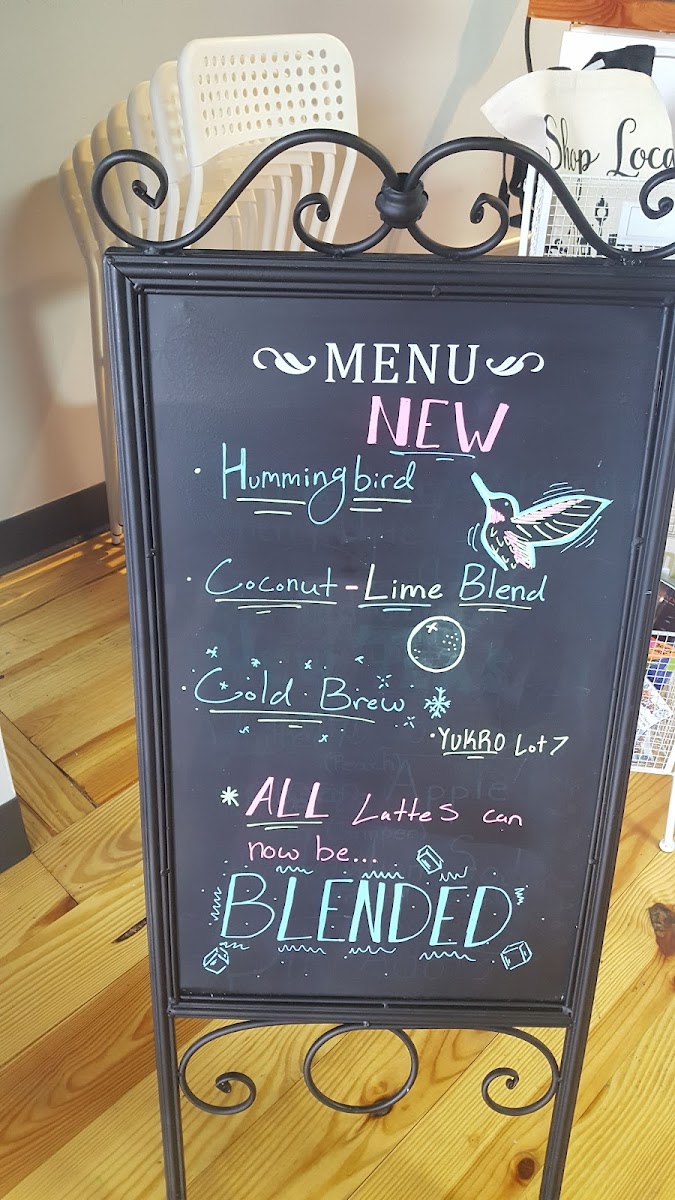 Shop Loca
MENU
NEW
• Hummingbird
• Coconut-Lime Blend
• Cold Brew
• YUKRO Lot 7
* ALL Lattes can
now be...
BLENDED